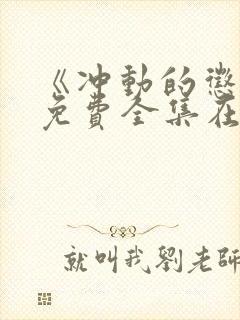 《冲動的懲
免費全集在
就叫我劉老師